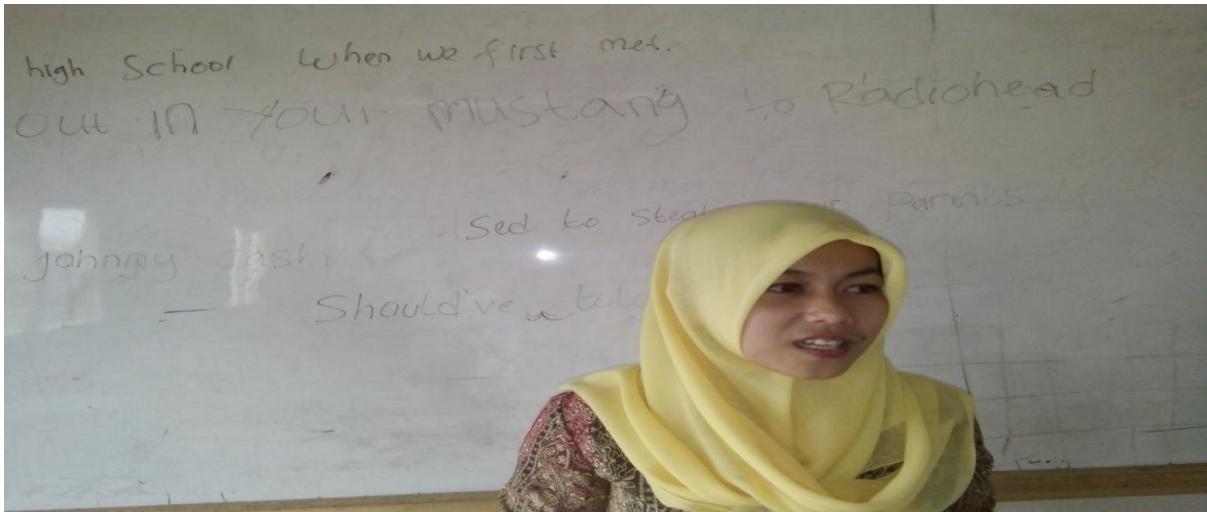 high School When we first met.
out in your mustang to Radiohead
sed to steal Parents
Johnny Cash
Should've